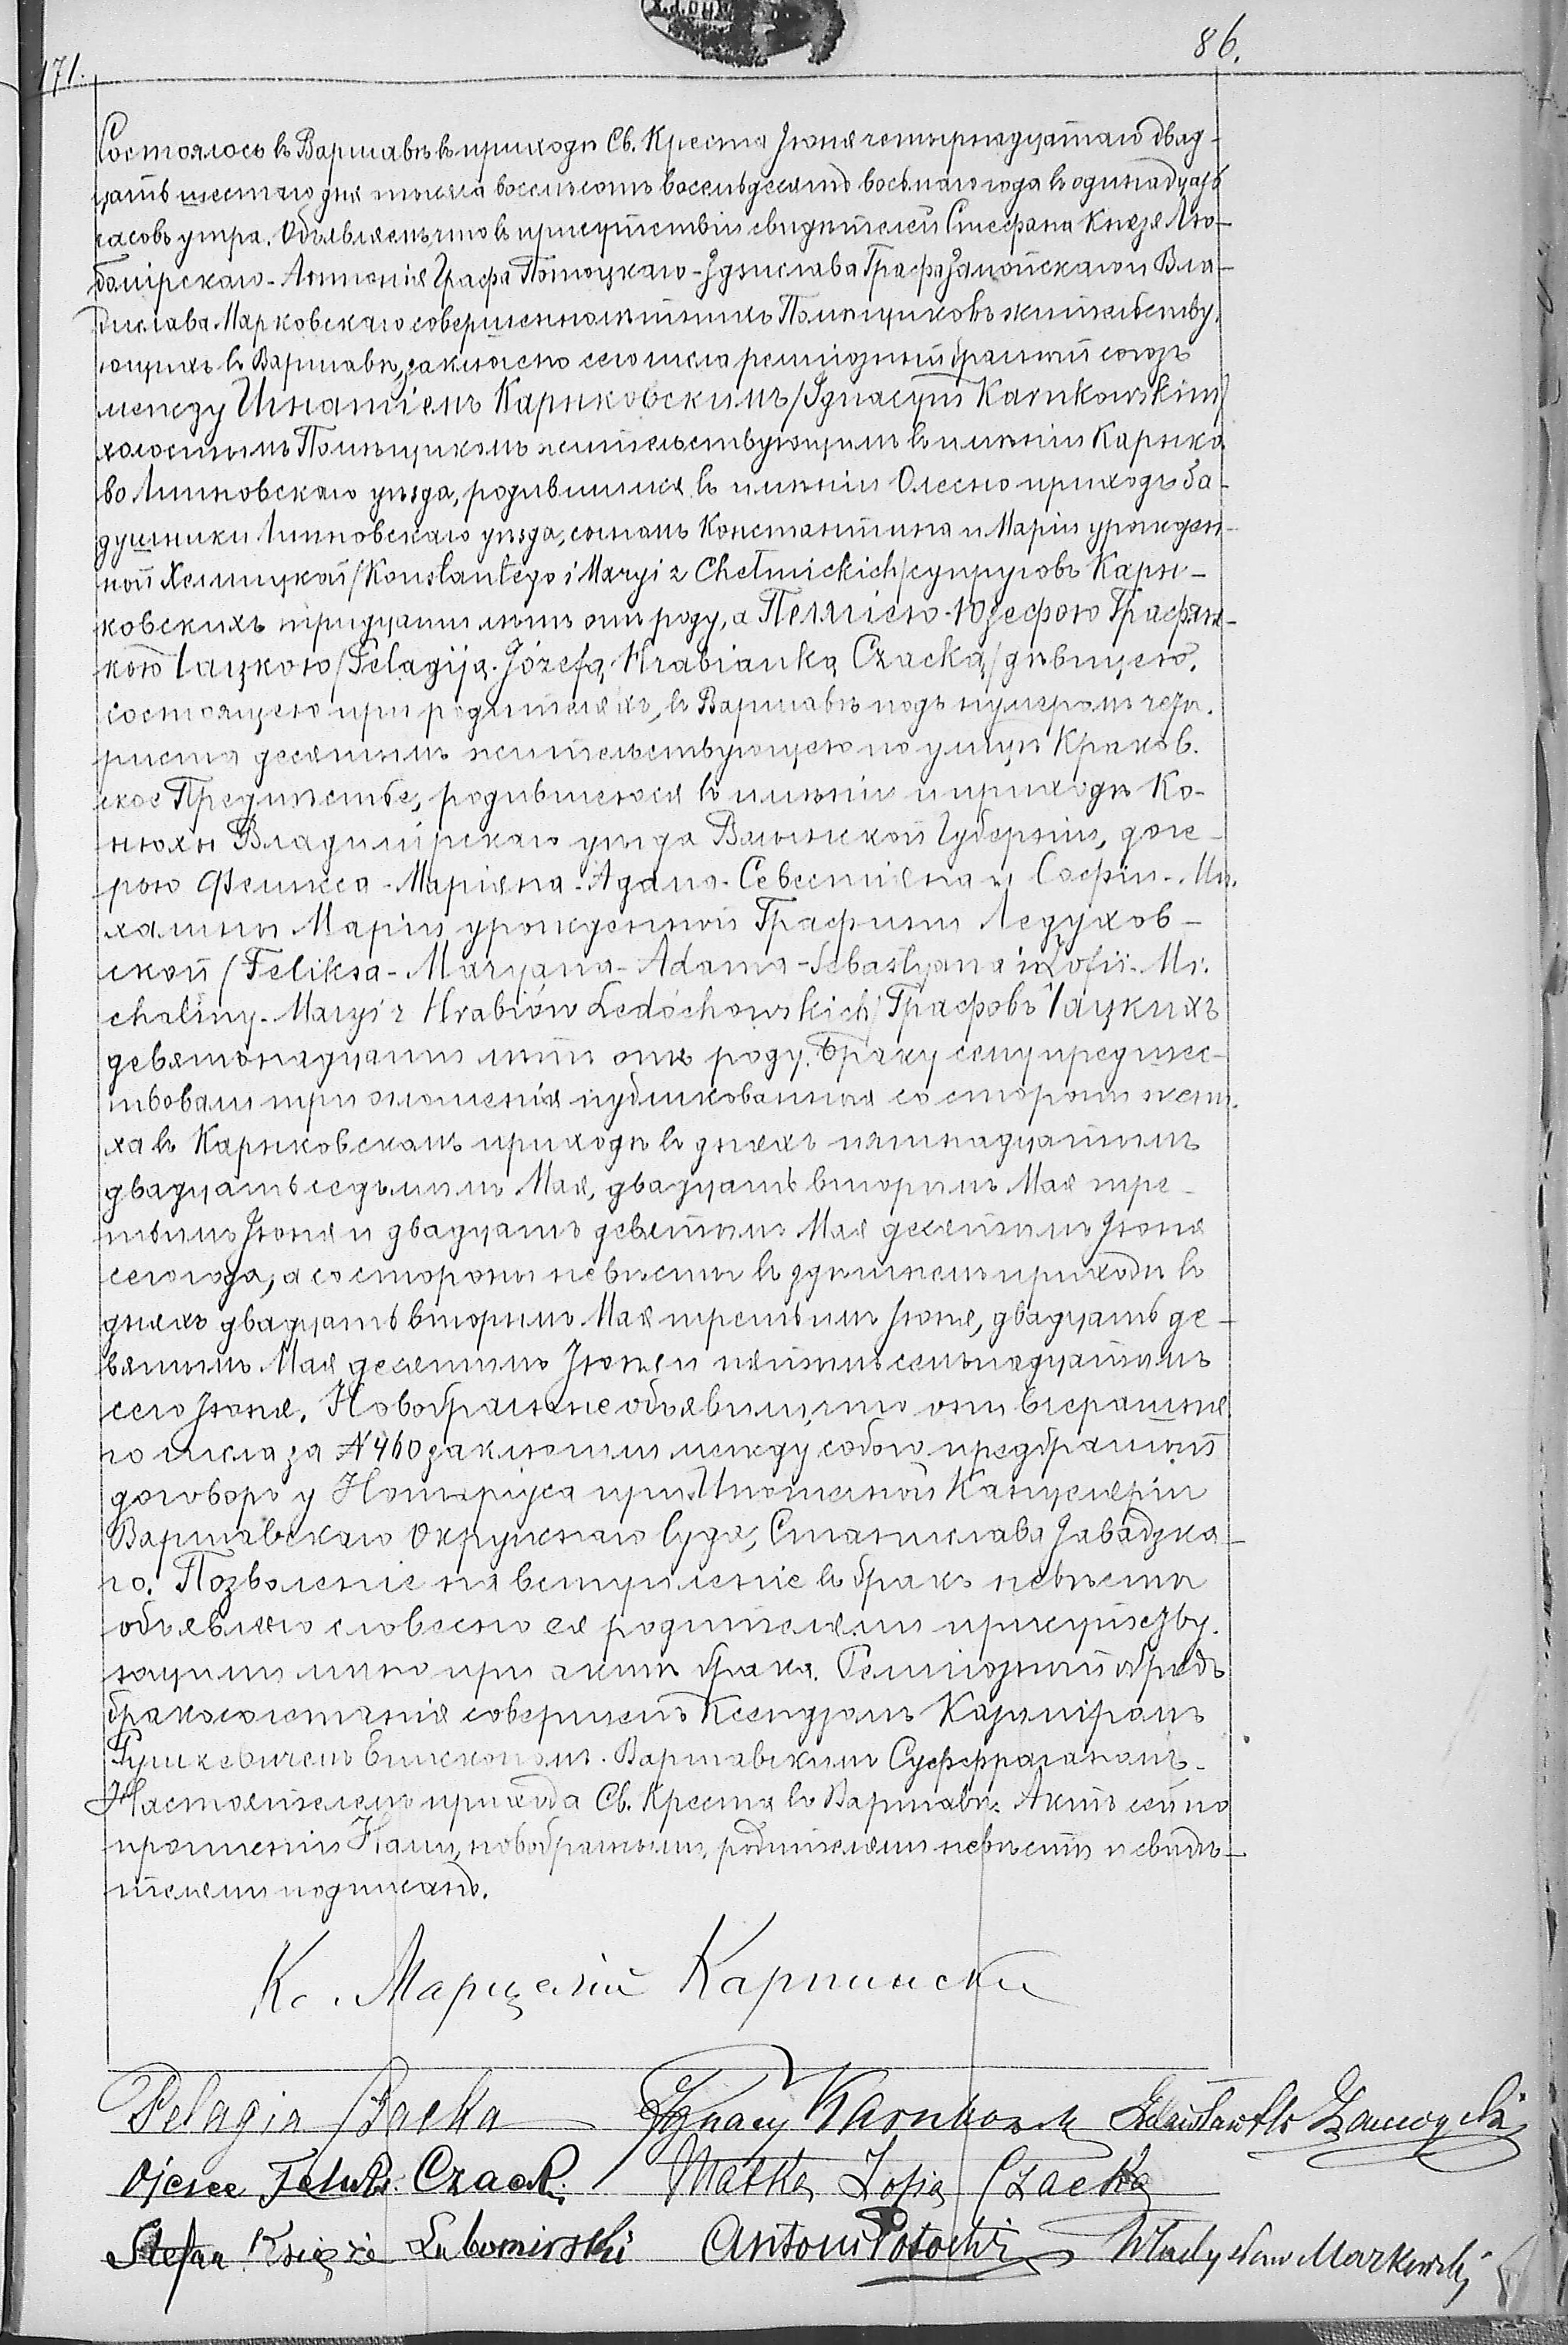 171.
86.
Состоялось въ Варшавѣ въ приходѣ Св. Креста Іюня четырнадцатаго двад-
цать шестаго дня тысяча восемьсотъ восемьдесятъ восьмаго года въ одинадцать
часовъ утра. Объявляемъ что въ присутствіи свидѣтелей Стефана Князя Лю-
бомірскаго - Антонія Графа Потоцкаго - Здзислава Графа Замойскаго и Вла-
дислава Марковскаго совершеннолѣтнихъ Помѣщиковъ жительству-
ющихъ въ Варшавѣ, заключенъ сего числа религіозный брачный союзъ
между Игнатіемъ Карнковскимъ /Ignacym Karnkowskim/
холостымъ Помѣщикомъ жительствующимъ въ имѣніи Карнко-
во Липновскаго уѣзда, родившимся въ имѣніи Олесно приходъ За-
душники Липновскаго уѣзда, сыномъ Константина и Маріи урожден-
ной Хелмицкой /Konstantego i Maryi z Chełmickich/ супруговъ Карн-
ковскихъ тридцати лѣтъ отъ роду, а Пелагіею-Юзефою Графян-
кою Чацкою /Pelagiją-Józefą Hrabianką Czacką/ дѣвицею,
состоящею при родителяхъ, въ Варшавѣ подъ нумеромъ четы-
риста десятымъ жительствующею по улицѣ Краков-
ское Предмѣстье, родившеюся въ имѣніи и приходѣ Ко-
нюхи Владимірскаго уѣзда Волынской Губерніи, доче-
рью Феликса-Маріяна-Адама-Севестіяна и Софіи-Ми-
халины Маріи урожденной Графини Ледухов-
ской /Feliksa-Maryana-Adama-Sebastyana i Zofii-Mi-
chaliny-Maryi z Hrabiów Ledóchowskich/ Графовъ Чацкихъ
девятонадцати лѣтъ отъ роду. Браку сему предшес-
твовали три оглашенія публикованныя со стороны жени-
ха въ Карнковскомъ приходѣ въ дняхъ пятнадцатымъ
двадцать седьмымъ Мая, двадцать вторымъ Мая тре-
тьимъ Іюня и двадцать девятымъ Мая десятымъ Іюня
сего года, а со стороны невѣсты въ здѣшнемъ приходѣ въ
дняхъ двадцать вторымъ Мая третьимъ Іюня, двадцать де-
вятымъ Мая десятымъ Іюня и пятымъ семьнадцатымъ
сего Іюня. Новобрачные объявили, что они вчерашня-
го числа за № 460 заключили между собою предбрачный
договоръ у Нотаріуса при Ипотечной Канцеляріи
Варшавскаго Окружнаго Суда, Станислава Завадзка-
го. Позволеніе на вступленіе въ бракъ невѣсты
объявлено словесно ея родителями присутству-
ющими лично при актѣ брака. Религіозный обрядъ
бракосочетанія совершенъ Ксендзомъ Казиміромъ
Рушкевичемъ Епископомъ - Варшавскимъ Суффраганомъ -
Настоятелемъ прихода Св. Креста въ Варшавѣ. Актъ сей по
прочтеніи Нами, новобрачными, родителями невѣсты и свидѣ-
телями подписанъ.
Кс. Марцелій Карпински
Pelagia Czacka Ignacy Karnkowski Zdzisław Hr Zamoyski
Ojciec Feliks Czacki Matka Zofia Czacka
Stefan Książe Lubomirski Antoni Potocki Władysław Markowski